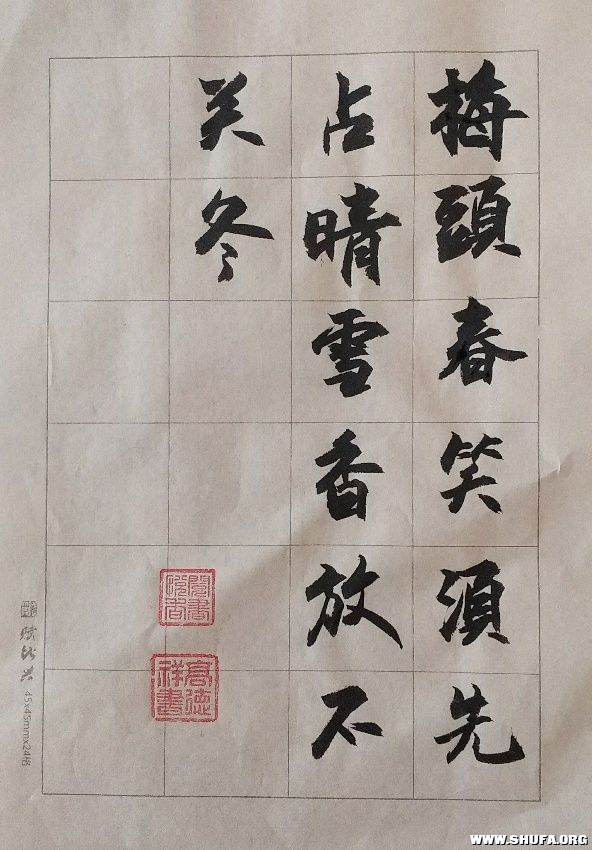 梅頭春笑湏先
占晴雪香放不
关冬
高德祥書
45x45mmx24格
WWW.SHUFA.ORG